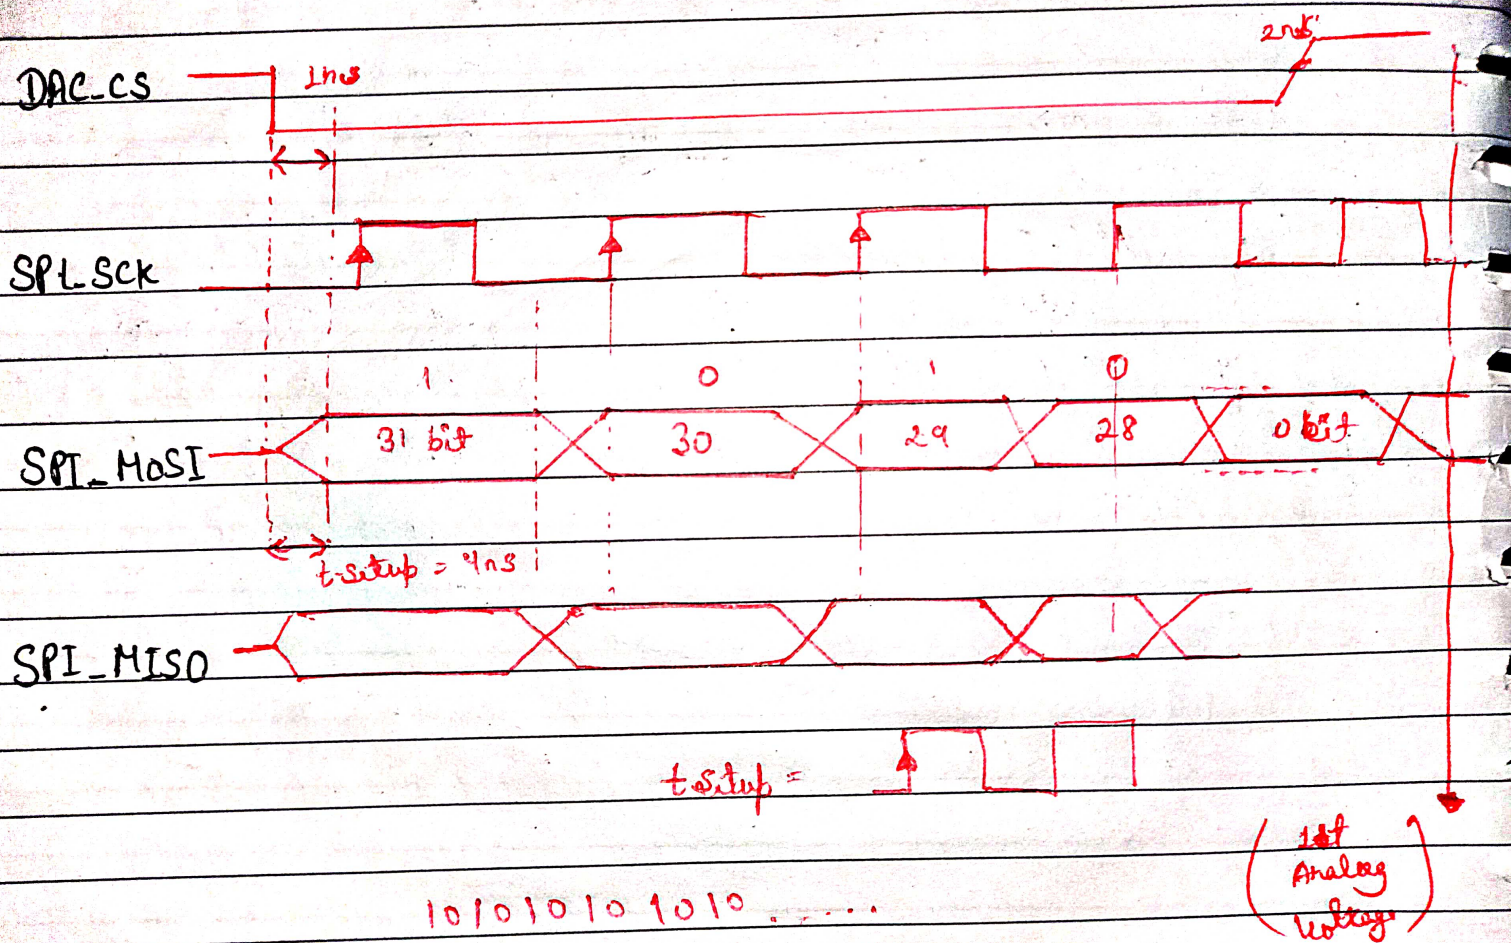 DAC_CS 1ns 2ns
SPI_SCK
1 0 1 0
SPI_MOSI 31 bit 30 29 28 0 bit
t-setup = 4ns
SPI_MISO
t-setup =
1st
Analog
Voltage
101010101010......